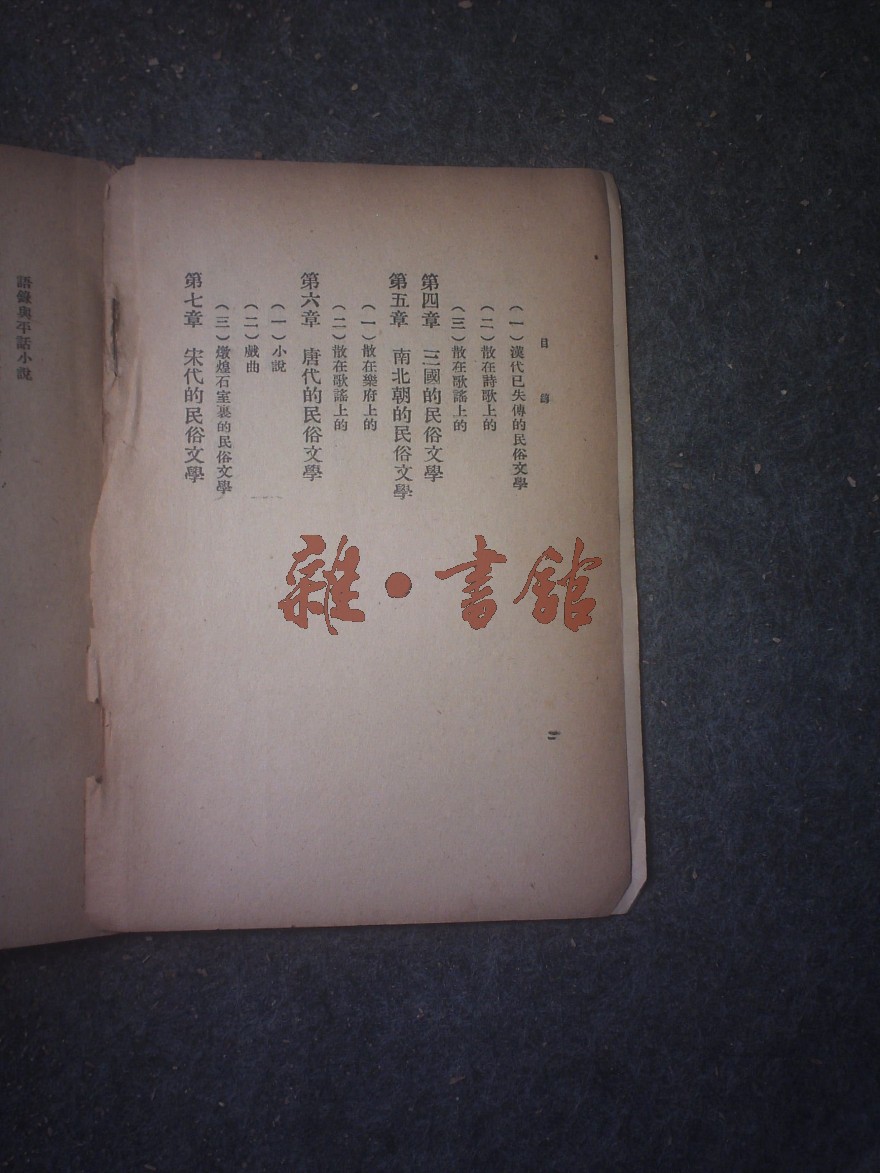 目錄
（一）漢代已失傳的民俗文學
（二）散在詩歌上的
（三）散在歌謠上的
第四章　三國的民俗文學
第五章　南北朝的民俗文學
（一）散在樂府上的
（二）散在歌謠上的
第六章　唐代的民俗文學
（一）小說
（二）戲曲
（三）燉煌石室裏的民俗文學
第七章　宋代的民俗文學
二
語錄與平話小說
雜·書館